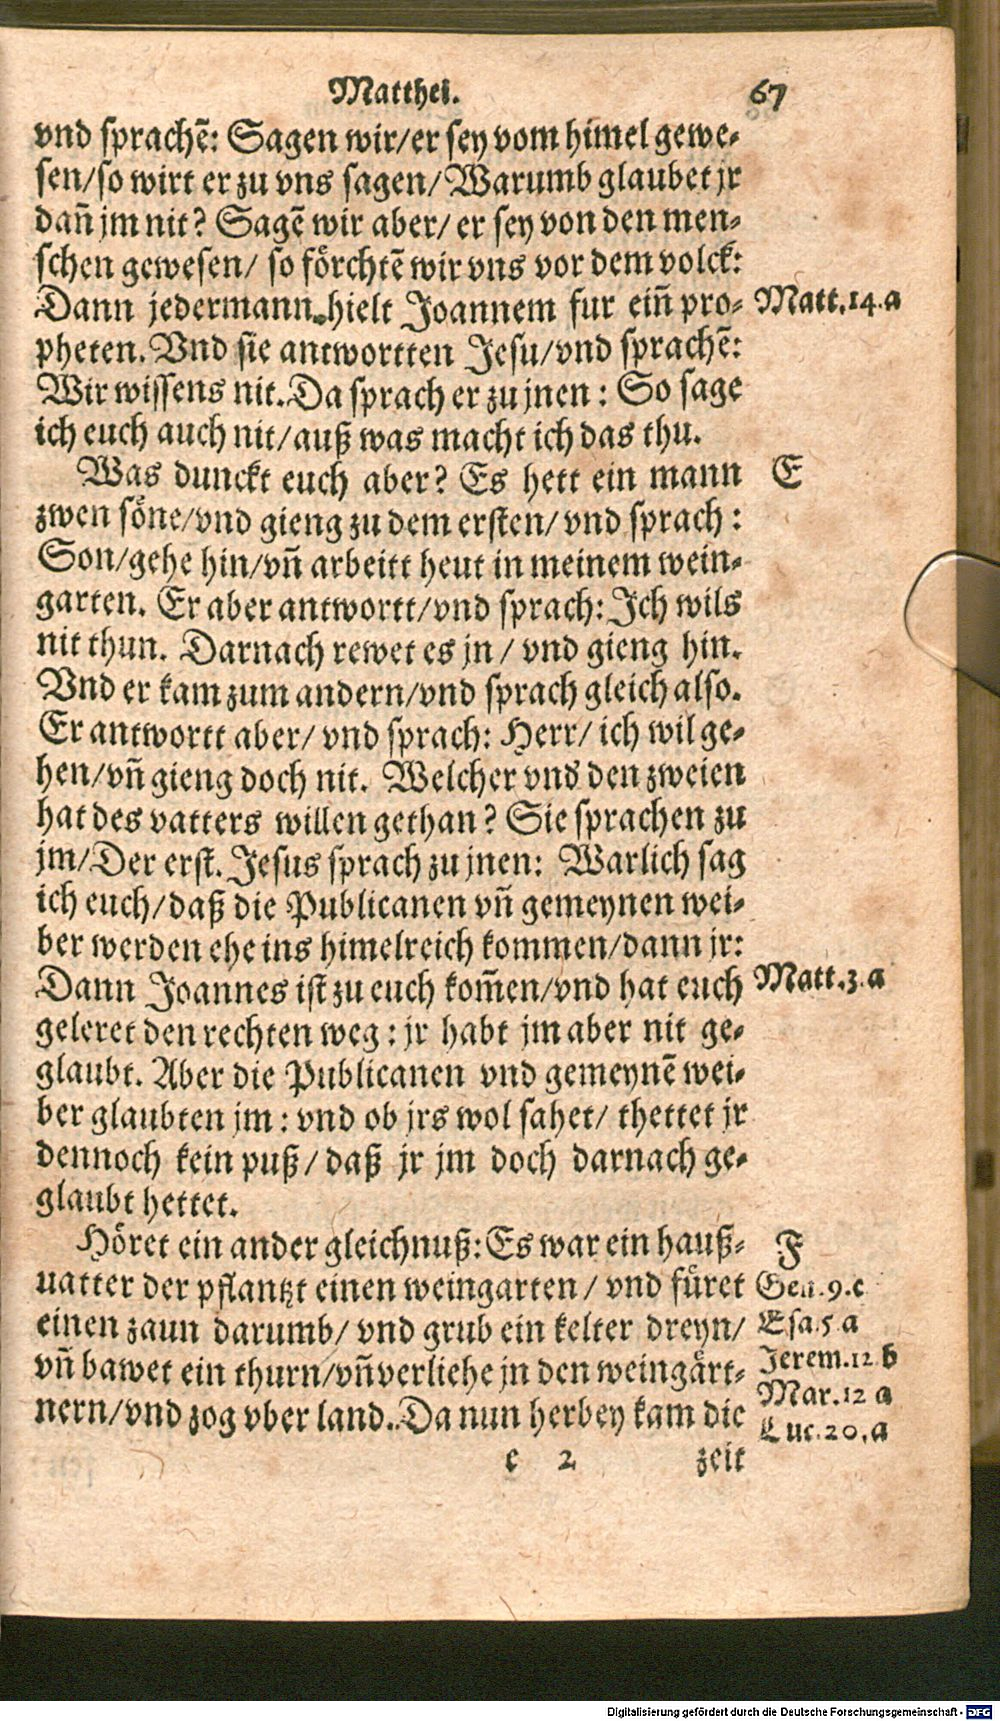 Matthei. 67
vnd sprachē: Sagen wir/er sey vom himel gewe⸗
sen/so wirt er zu vns sagen/Warumb glaubet jr
dañ jm nit? Sagē wir aber/ er sey von den men⸗
schen gewesen/ so förchtē wir vns vor dem volck:
Dann jedermann hielt Joannem fur eiñ pro⸗ Matt.14.a
pheten. Vnd sie antwortten Jesu/vnd sprachē:
Wir wissens nit. Da sprach er zu jnen: So sage
ich euch auch nit/auß was macht ich das thu.
Was dunckt euch aber? Es hett ein mann E
zwen söne/vnd gieng zu dem ersten/ vnd sprach:
Son/gehe hin/vñ arbeitt heut in meinem wein⸗
garten. Er aber antwortt/vnd sprach: Ich wils
nit thun. Darnach rewet es jn/ vnd gieng hin.
Vnd er kam zum andern/vnd sprach gleich also.
Er antwortt aber/ vnd sprach: Herr/ ich wil ge⸗
hen/vñ gieng doch nit. Welcher vnd den zweien
hat des vatters willen gethan? Sie sprachen zu
jm/Der erst. Jesus sprach zu jnen: Warlich sag
ich euch/daß die Publicanen vñ gemeynen wei⸗
ber werden ehe ins himelreich kommen/dann jr:
Dann Joannes ist zu euch kom̃en/vnd hat euch Matt.3.a
geleret den rechten weg: jr habt jm aber nit ge⸗
glaubt. Aber die Publicanen vnd gemeynē wei⸗
ber glaubten jm: vnd ob jrs wol sahet/ thettet jr
dennoch kein puß/ daß jr jm doch darnach ge⸗
glaubt hettet.
Höret ein ander gleichnuß: Es war ein hauß⸗ F
uatter der pflantzt einen weingarten/ vnd füret Gen.9.c
einen zaun darumb/ vnd grub ein kelter dreyn/ Esa.5 a
vñ bawet ein thurn/vñ verliehe jn den weingärt⸗ Jerem.12 b
nern/vnd zog vber land. Da nun herbey kam die Mar.12 a
Luc.20.a
c 2 zeit
Digitalisierung gefördert durch die Deutsche Forschungsgemeinschaft - DFG